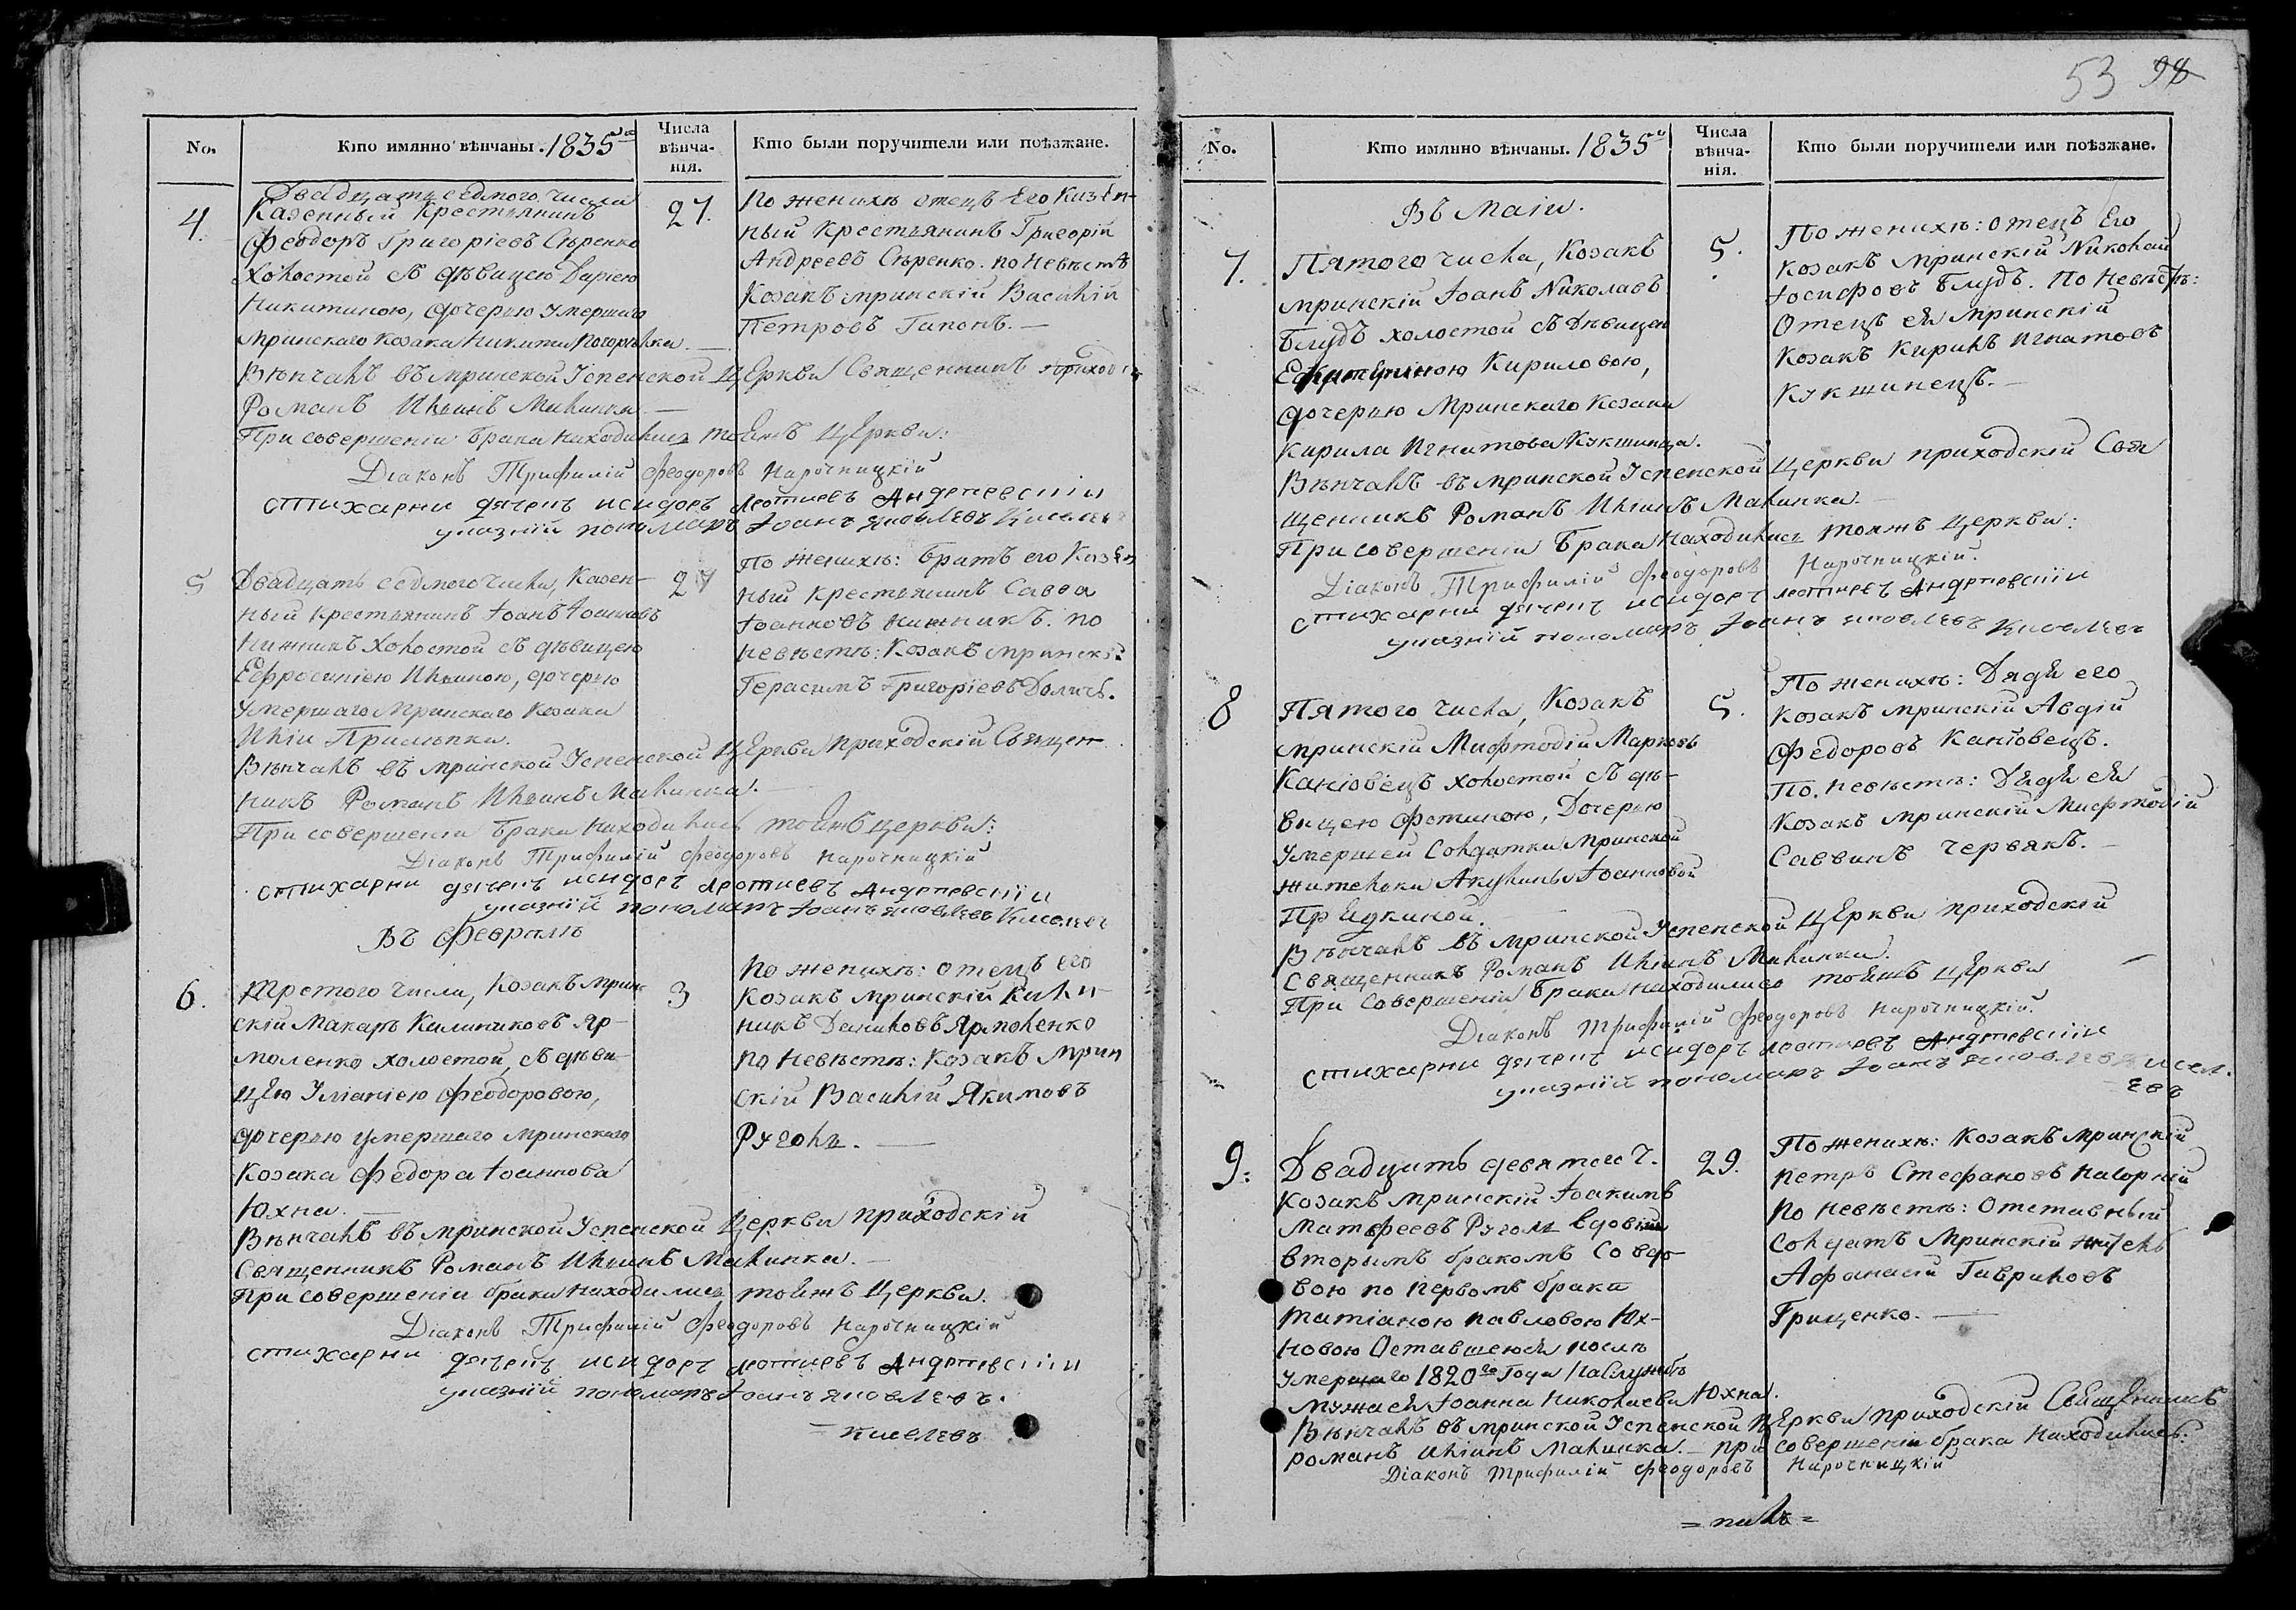 53 98
No. Кто имянно вѣнчаны. 1835го Числа вѣнча-нія. Кто были поручители или поѣзжане.
Двадцать седмого числа
4. Казенный Крестьянинъ
Феодоръ Григоріевъ Сѣренко
Холостой съ дѣвицею Даріею
Никитиною, дочерью умершаго
Мринскаго Козака Никиты Погорѣлка.
27.
По женихѣ отецъ Его Казен-
ный Крестьянинъ Григорій
Андреевъ Сѣренко. по Невѣстѣ
Козакъ мринскій Василій
Петровъ Гапонъ. —
Вѣнчалъ въ мринской Успенской Церкви Священникъ приход
Романъ Ильинъ Малинка —
При совершеніи брака находились тоежъ Церкви:
Діаконъ Трифилій Феодоровъ Нарочницкій
стихарни дячекъ исидоръ леотиевъ Андрпевскіи
указній пономаръ Іоанъ яковлевъ Киселевъ
5 Двадцать седмого числа, Казен-
ный крестьянинъ Іоанъ Іоанновъ
Нижникъ Холостой съ дѣвицею
Ефросиніею Ильиною, дочерью
Умершаго Мринскаго Козака
Иліи Прилѣпка.
27
По Женихѣ: братъ его Казен
ный крестьянинъ Савва
Іоанновъ нижникъ. по
невѣстѣ: Козакъ мринскій
Герасимъ Григоріевъ Доличъ.
Вѣнчалъ въ мринской Успенской Церкви приходскій Священ
никъ Романъ Ильинъ Малинка. —
При совершеніи брака находились тоежъ церкви:
Діаконъ Трифилій Феодоровъ Нарочницкій
стихарни дячекъ исидоръ леотиевъ Андрпевскіи
указній пономаръ Іоанъ яковлевъ Киселевъ
Въ Февралѣ
6. Третого числа, Козакъ мрин
скій Макаръ Калиниковъ Яр-
моленко холостой, съ дѣви-
цею Уліаніею Феодоровою,
дочерью умершаго мринскаго
Козака Федора Іоаннова
Юхна. —
3
По женихѣ: отецъ его
Козакъ мринскій Кали-
никъ Даниловъ Ярмоленко
по Невѣстѣ: Козакъ Мрин
скій Василій Якимовъ
Руголь. —
Вѣнчалъ въ мринской Успенской Церкви приходскій
Священникъ Романъ Ильинъ Малинка. —
При совершеніи брака находились тоежъ Церкви.
Діаконъ Трифилій Феодоровъ Нарочницкій
стихарни дячекъ исидоръ леотиевъ Андрпевскіи
указній пономаръ Іоанъ яковлевъ.
= киселевъ
No. Кто имянно вѣнчаны. 1835го Числа вѣнча-нія. Кто были поручители или поѣзжане.
Въ Маіи.
7. Пятого числа, Козакъ
мринскій Іоанъ Николаевъ
Блудъ холостой съ дѣвицею
Екатериною Кириловою,
дочерью Мринскаго Козака
Кирила Игнатова Кукшинца.
5.
По женихѣ: отецъ Его
Козакъ мринскій Николай
Іосифовъ Блудъ. По Невѣстѣ:
Отецъ ея мринскій
Козакъ Кирилъ Игнатовъ
Кукшинецъ. —
Вѣнчалъ въ мринской Успенской Церкви приходскій Свя
щенникъ Романъ Ильинъ Малинка. —
При совершеніи брака находились тояжъ Церкви:
Діаконъ Трифилій Феодоровъ Нарочницкій.
стихарни дячекъ исидоръ леотиевъ Андрпевскіи
указній пономаръ Іоанъ яковлевъ Киселевъ
8 Пятого числа, Козакъ
мринскій Мифтодій Марковъ
Каніовецъ холостой съ дѣ-
вицею Фотиною, Дочерью
умершей Солдатки мринской
жительки Акулины Іоанновой
Предкиной.
5.
По женихѣ: Дядя его
Козакъ мринскій Авдій
Федоровъ Каніовецъ.
По. невѣстѣ: Дядя ея
Козакъ мринскій Мифтодій
Саввинъ Червякъ. —
Вѣнчалъ въ мринской Успенской Церкви приходскій
Священникъ Романъ Ильинъ Малинка. —
При Совершеніи брака находились тоежъ Церкви
Діаконъ Трифилій Феодоровъ Нарочницкій.
стихарни дячекъ исидоръ леотиевъ Андрпевскіи
указній пономаръ Іоанъ яковлевъ кисел.
евъ
9. Двадцать девятого ч.
Козакъ мринскій Іоакимъ
Матфеевъ Руголь вдовый
вторымъ бракомъ Со вдо-
вою по первомъ браки
Татіаною Павловою Юх-
новою Оставшеюся послѣ
умершаго 1820го Года На службѣ
мужа ея Іоанна Николаева Юхна.
29.
По женихѣ: Козакъ мринскій
Петръ Стефановъ Нагорній
По невѣстѣ: Отставный
Солдатъ Мринскій житель
Афанасій Гавриловъ
Грищенко. —
Вѣнчалъ въ мринской Успенской Церкви приходскій Священникъ
Романъ Ильинъ Малинка. — при совершеніи брака находились.
Діаконъ Трифилій Феодоровъ Нарочницкій